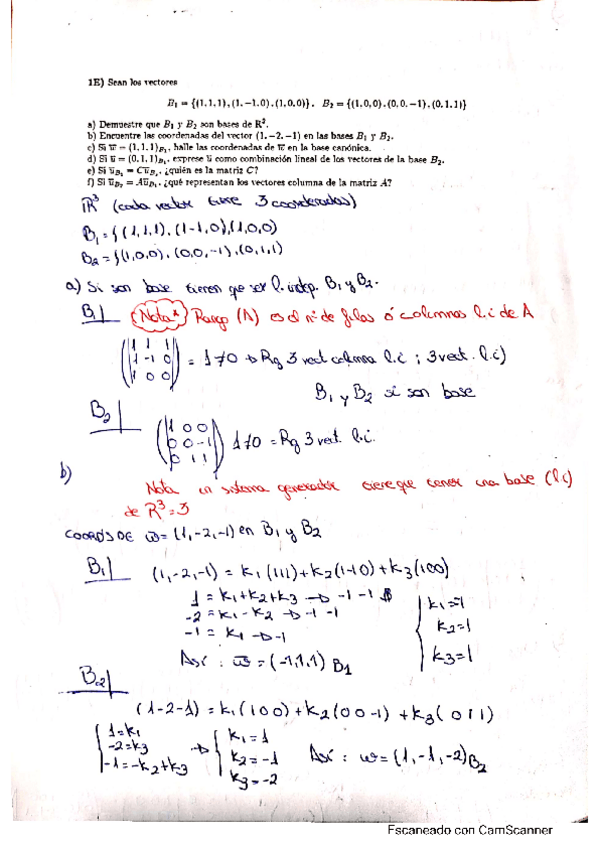 1E) Sean los vectores
B₁ = {(1, 1, 1), (1, −1, 0), (1, 0, 0)}, B₂ = {(1, 0, 0), (0, 0, −1), (0, 1, 1)}
a) Demuestre que B₁ y B₂ son bases de R³.
b) Encuentre las coordenadas del vector (1, −2, −1) en las bases B₁ y B₂.
c) Si w̅ = (1, 1, 1)B₁, halle las coordenadas de w̅ en la base canónica.
d) Si u̅ = (0, 1, 1)B₁, exprese u̅ como combinación lineal de los vectores de la base B₂.
e) Si u̅B₁ = Cu̅B₂, ¿quién es la matriz C?
f) Si u̅B₂ = Au̅B₁, ¿qué representan los vectores columna de la matriz A?
R³ (cada vector tiene 3 coordenadas)
B₁ = {(1,1,1), (1-1,0), (1,0,0)
B₂ = {(1,0,0), (0,0,-1), (0,1,1)
a) Si son base tienen que ser l. indep. B₁ y B₂.
B₁| Nota* Rango (A) es el nº de filas ó columnas l.i de A
1 1 1
1 -1 0 = 1≠0 → Rg 3 vect columna l.i ; 3 vect. l.i)
1 0 0
B₁ y B₂ si son base
B₂|
1 0 0
0 0 -1 1≠0 = Rg 3 vect. l.i.
0 1 1
b)
Nota un sistema generador tiene que tener una base (l.i)
de R³=3
COORDS DE w̅ = (1,-2,-1) en B₁ y B₂
B₁| (1,-2,-1) = k₁(111)+k₂(1-10)+k₃(100)
1 = k₁+k₂+k₃ → -1 -1
-2 = k₁-k₂ → -1 -1
-1 = k₁ → -1
k₁=-1
k₂=1
k₃=1
Así : w̅ = (-1,1,1) B₁
B₂|
(1-2-1) = k₁(100)+k₂(00-1) +k₃(011)
1=k₁
-2=k₃
-1=-k₂+k₃
→ k₁=1
k₂=-1
k₃=-2
Así : w=(1,-1,-2)B₂
Escaneado con CamScanner